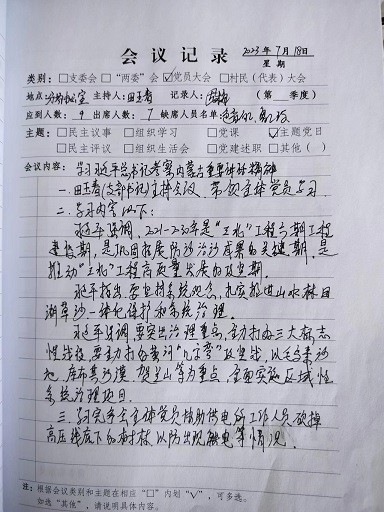 会议记录 2023年7月18日
星期
类别：□支委会 □“两委”会 ☑党员大会 □村民（代表）大会
地点： 主持人：田玉春 记录人： （第 季度）
应到人数：9 出席人数：7 缺席人员名单
主题：□民主议事 □组织学习 □党课 ☑主题党日
□民主评议 □组织生活会 □党建述职 □其他（ ）
会议内容：学习习近平总书记考察内蒙古重要讲话精神
一.田玉春(支部书记)主持会议，带领全体党员学习
二.学习内容以下：
习近平强调，2021-2030年是“三北”工程六期工程
建设期，是巩固拓展防沙治沙成果的关键期，是
推动“三北”工程高质量发展的攻坚期。
习近平指出，要坚持系统观念，扎实推进山水林田
湖草沙一体化保护和系统治理。
习近平强调，要突出治理重点，全力打好三大标志
性战役。要全力打好黄河“几字弯”攻坚战，以毛乌素沙
地、库布其沙漠、贺兰山等为重点，全面实施区域性
系统治理项目。
三.学习完毕全体党员协助供电所工作人员砍掉
高压线底下的树枝，以防出现触电等情况。
注：根据会议类别和主题在相应“□”内划“√”，可多选。
如选“其他”，请说明具体内容。